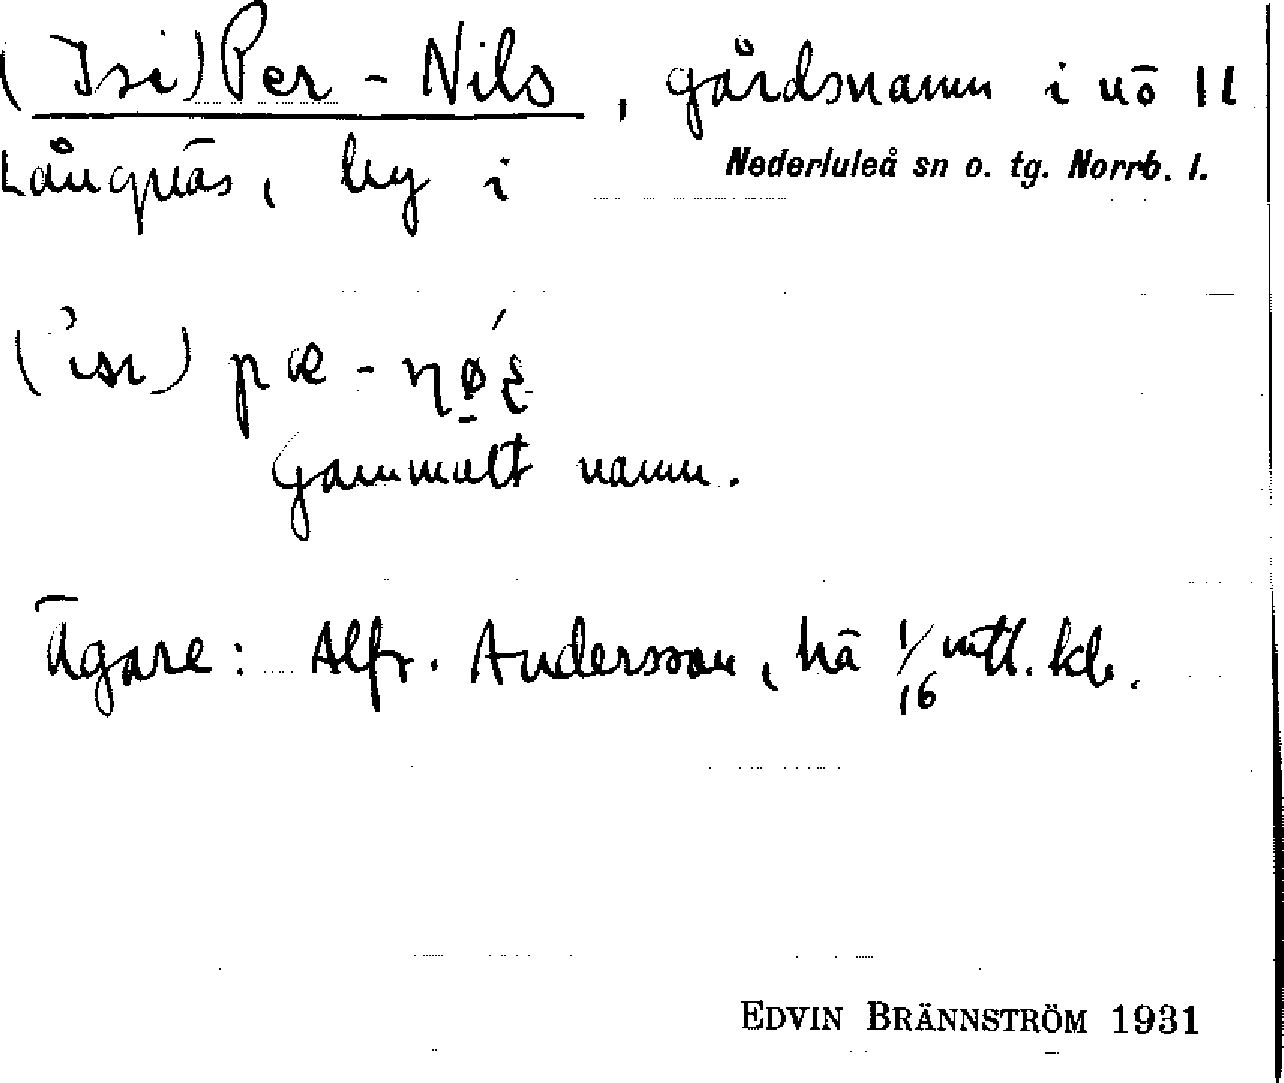 (Isi)Per-Nils, gårdsnamn i nö 11
Långnäs, by i Nederluleå sn o. tg. Norrb. l.
Gammalt namn.
Ägare: Alfr. Andersson, hä 1/16 mtl. kb.
EDVIN BRÄNNSTRÖM 1931